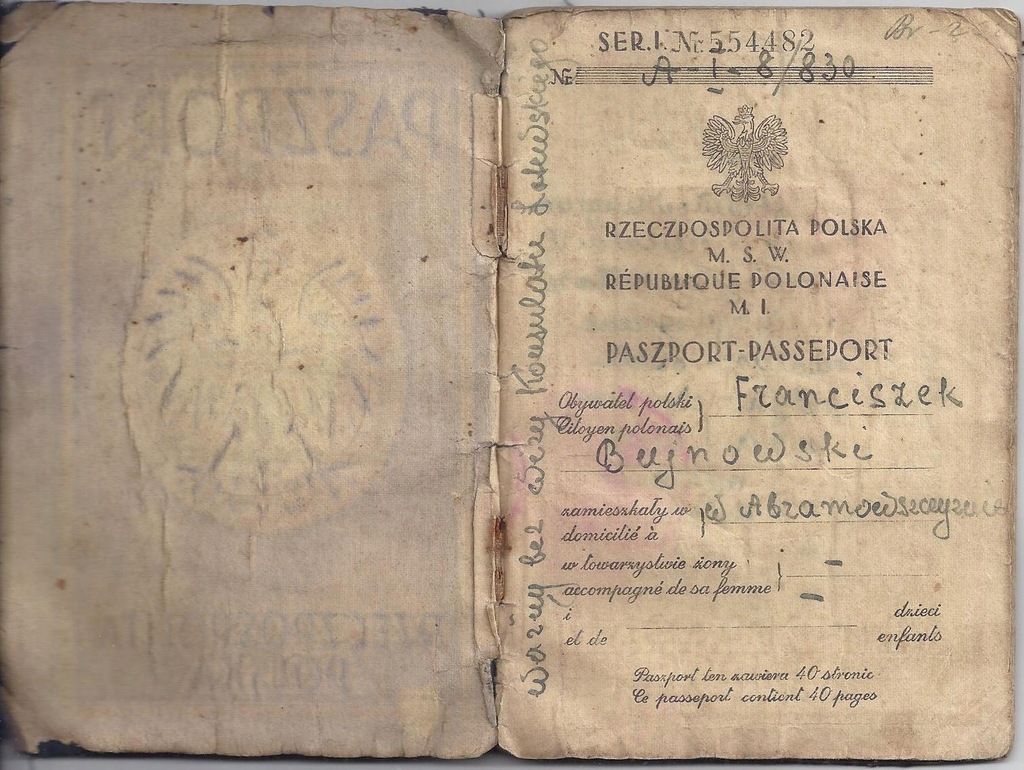 PASZPORT
RZECZPOSPOLITA
POLSKA
ważny bez wizy Konsulatu Łotewskiego
Br-2
SER.I. № 554482
Nr. A-I-8/830
RZECZPOSPOLITA POLSKA
M. S. W.
RÉPUBLIQUE POLONAISE
M. I.
PASZPORT-PASSEPORT
Obywatel polski } Franciszek
Citoyen polonais
Bujnowski
zamieszkały w } w Abramowszczyznie
domicilié à
w towarzystwie żony } –
accompagné de sa femme
i – dzieci
et de enfants
Paszport ten zawiera 40 stronic
Ce passeport contient 40 pages